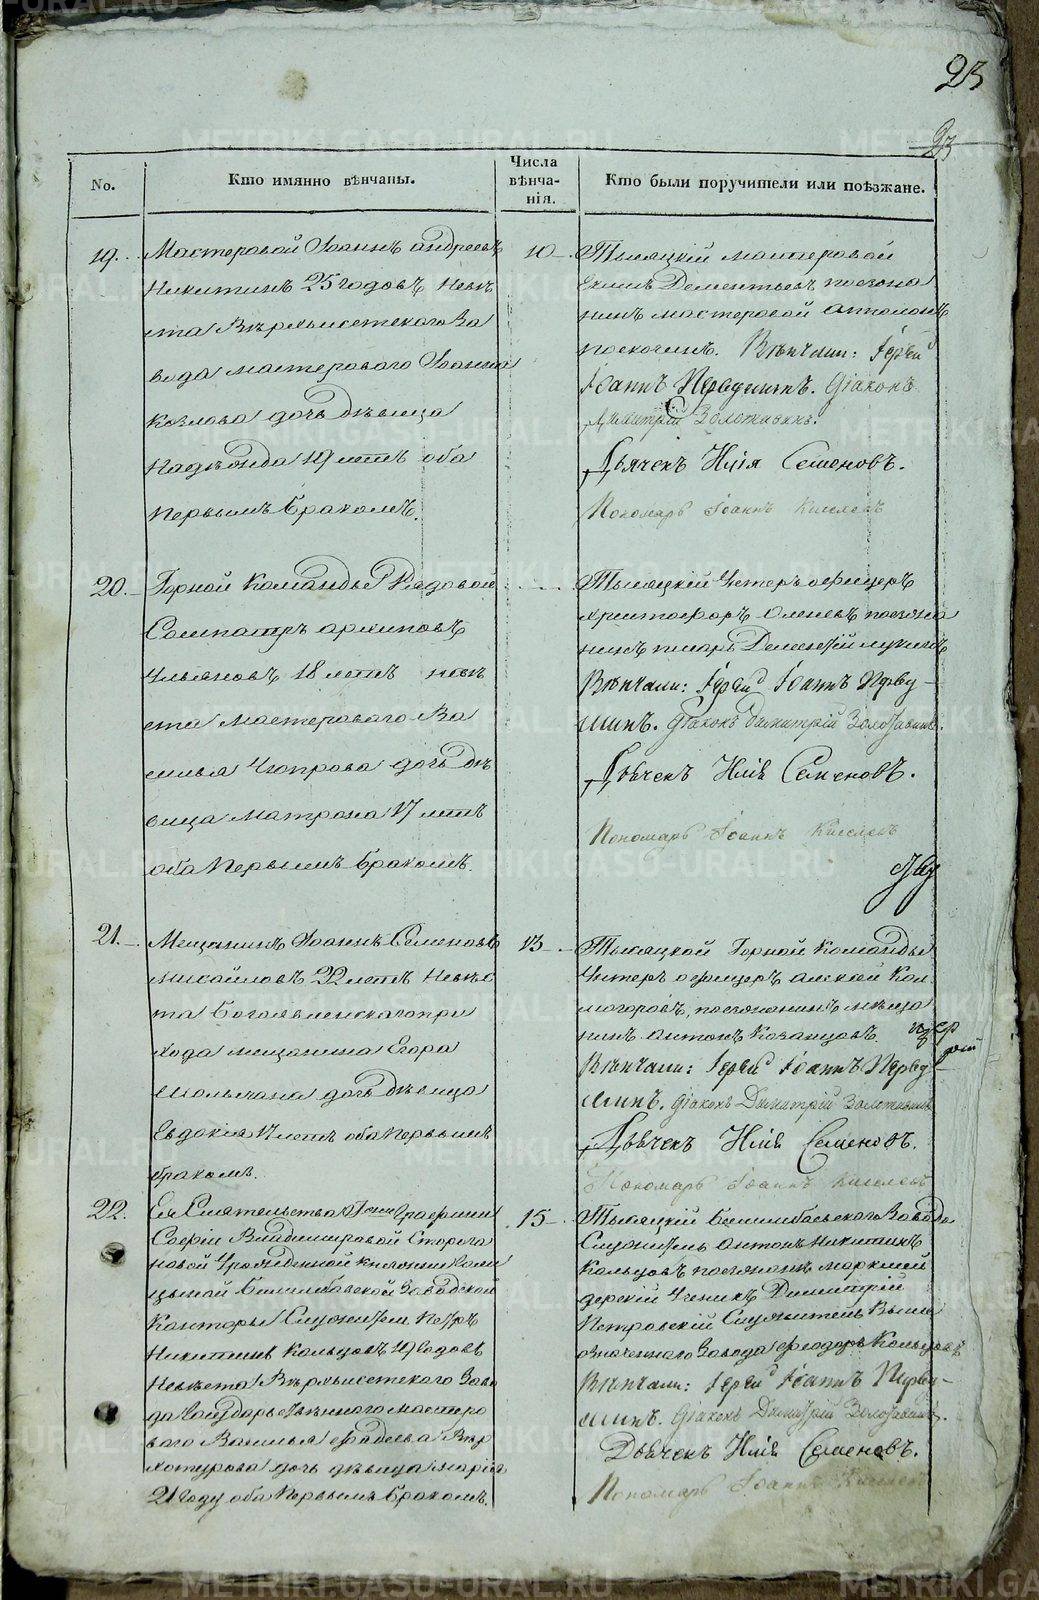 23
23
No.
Кто имянно вѣнчаны.
Числа
вѣнча-
нія.
Кто были поручители или поѣзжане.
19.
Мастеровой Іоаннъ Андреевъ
Никитинъ 25 годовъ, невѣ
ста Верхъисетского За
вода мастерового Іоанна
Козлова дочь дѣвица
Надѣжда 19 летъ оба
первымъ бракомъ.
10
Тысяцкій мастеровой
Дементьевъ поезжа
нинъ мастеровой
Вѣнчали: Іерей
Іоаннъ Первушинъ. Діаконъ
Димитрій Золотавинъ.
Дьячекъ Илія Семеновъ.
Пономарь Іоаннъ Киселевъ
20.
Горной Команды Рядовой
Сосипатръ Архиповъ
Ульяновъ 18 летъ невѣ
ста мастероваго Ва
силья Чюпрова дочь дѣ
вица Матрона 17 летъ
оба первымъ бракомъ.
Тысяцкій Унтеръ офицеръ
Христофоръ Оленевъ поезжа
нинъ писарь
Вѣнчали: Іерей Іоаннъ Перву-
шинъ. Діаконъ Димитрій Золотавинъ.
Дьячекъ Илія Семеновъ.
Пономарь Іоаннъ Киселевъ
21.
Мещанинъ Іоаннъ Семеновъ
Михайловъ 22 летъ невѣс
та Богоявленскаго при
хода мещанина Егора
дочь дѣвица
Евдокія 17 летъ оба первымъ
бракомъ.
13
Тысяцкой Горной Команды
Унтеръ офицеръ Алексей Кол
могоровъ, поезжанинъ меща
нинъ Антонъ Казанцовъ.
Вѣнчали: Іерей Іоаннъ Перву-
шинъ. Діаконъ Димитрій Золотавинъ
Дьячекъ Илія Семеновъ.
Пономарь Іоаннъ Киселевъ
22.
Ея Сіятельства Г-жи Графини
Софіи Владимировой Строга
новой Урожденной княжны Голи
цыной Билимбаевской Заводской
Конторы Служитель Петръ
Никитинъ Кольцовъ 19 годовъ
Невѣста Верхъисетского Заво
да Государственного мастеро
вого Василья Фадеева Вер
хотурова дочь дѣвица Марія
21 году оба первымъ бракомъ.
15
Тысяцкій Билимбаевского Завода
Служитель Антонъ Никитинъ
Кольцовъ поезжанъ маркшей
дерскій Ученикъ Димитрій
Петровскій Служитель Выше
означенного Завода Феодоръ Кольцовъ
Вѣнчали: Іерей Іоаннъ Перву-
шинъ. Діаконъ Димитрій Золотавинъ.
Дьячекъ Илія Семеновъ.
Пономарь Іоаннъ Киселевъ
METRIKI.GASO-URAL.RU